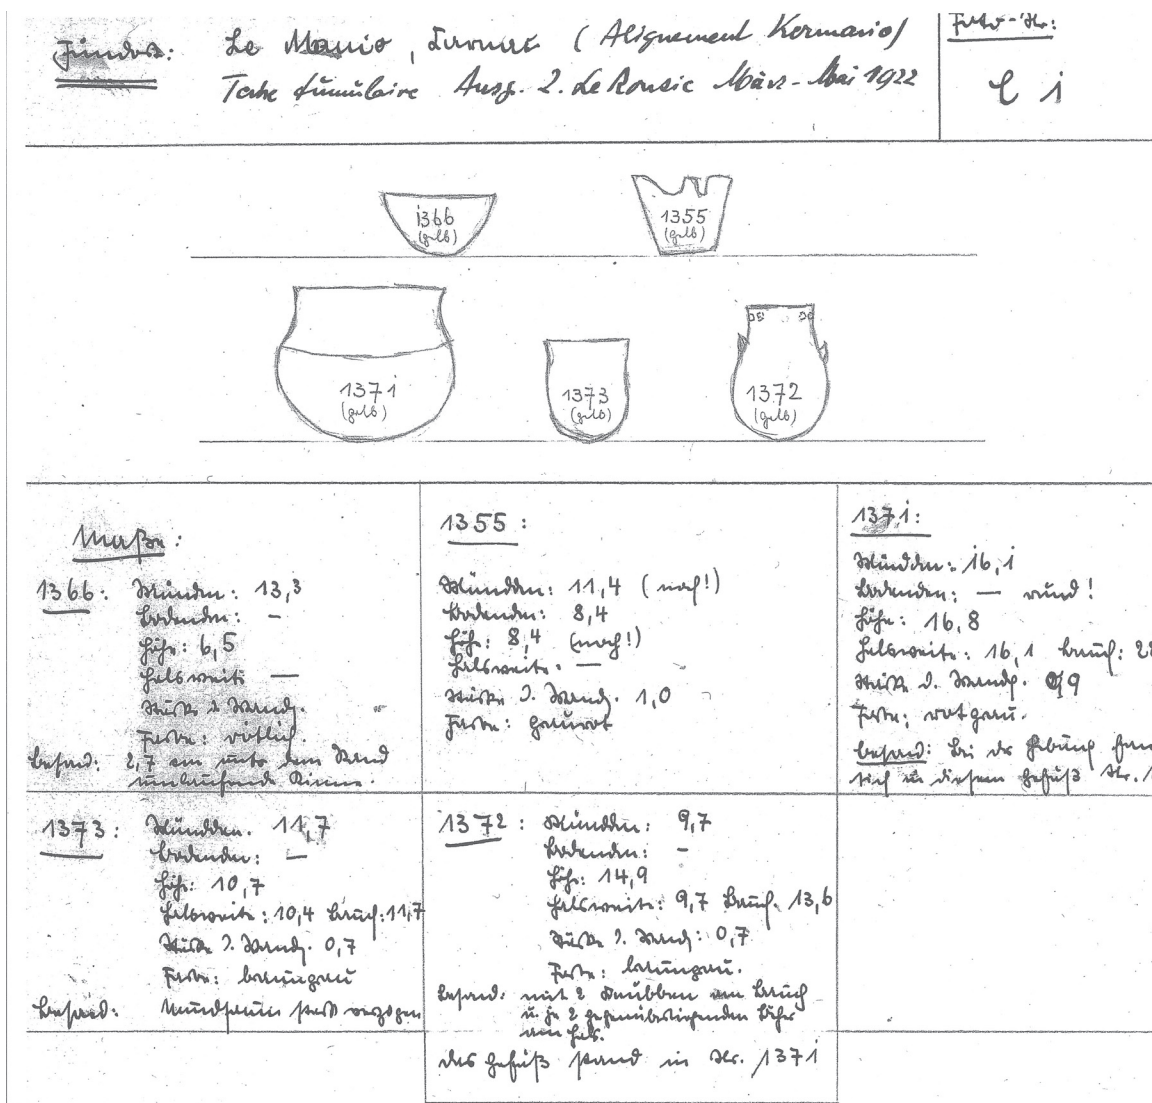 Fundort: Le Manio, Carnac (Alignement Kermario)
Tertre tumulaire Ausg. Z. Le Rouzic März-Mai 1922
Foto-Nr:
C 1
1366
(gelb)
1355
(gelb)
1371
(gelb)
1373
(gelb)
1372
(gelb)
Maße:
1366: Münddm: 13,3
Bodendm: -
Höhe: 6,5
Halsweite —
Stärke d. Wandg.
Farbe: rötlich.
Besond: 2,7 cm unter dem Rand
umlaufende Rinne.
1355:
Münddm: 11,4 (noch!)
Bodendm: 8,4
Höhe: 8,4 (noch!)
Halsweite. —
Stärke d. Wandg. 1,0
Farbe: graurot
1371:
Münddm: 16,1
Bodendm: — rund!
Höhe: 16,8
Halsweite: 16,1 Bauch: 22
Stärke d. Wandg. 0,9
Farbe: rotgrau.
Besond: Bei der Hebung
sich in diesem Gefäß Nr. 1
1373: Münddm. 11,7
Bodendm: —
Höhe: 10,7
Halsweite: 10,4 Bauch: 11,7
Stärke d. Wandg. 0,7
Farbe: braungrau
Besond: Mundsaum stark verzogen
1372: Münddm: 9,7
Bodendm: -
Höhe: 14,9
Halsweite: 9,7 Bauch. 13,6
Stärke d. Wandg: 0,7
Farbe: braungrau.
Besond: mit 2 Knubben am Bauch
u. je 2 gegenüberliegenden Löcher
am Hals.
das Gefäß stand in Nr. 1371